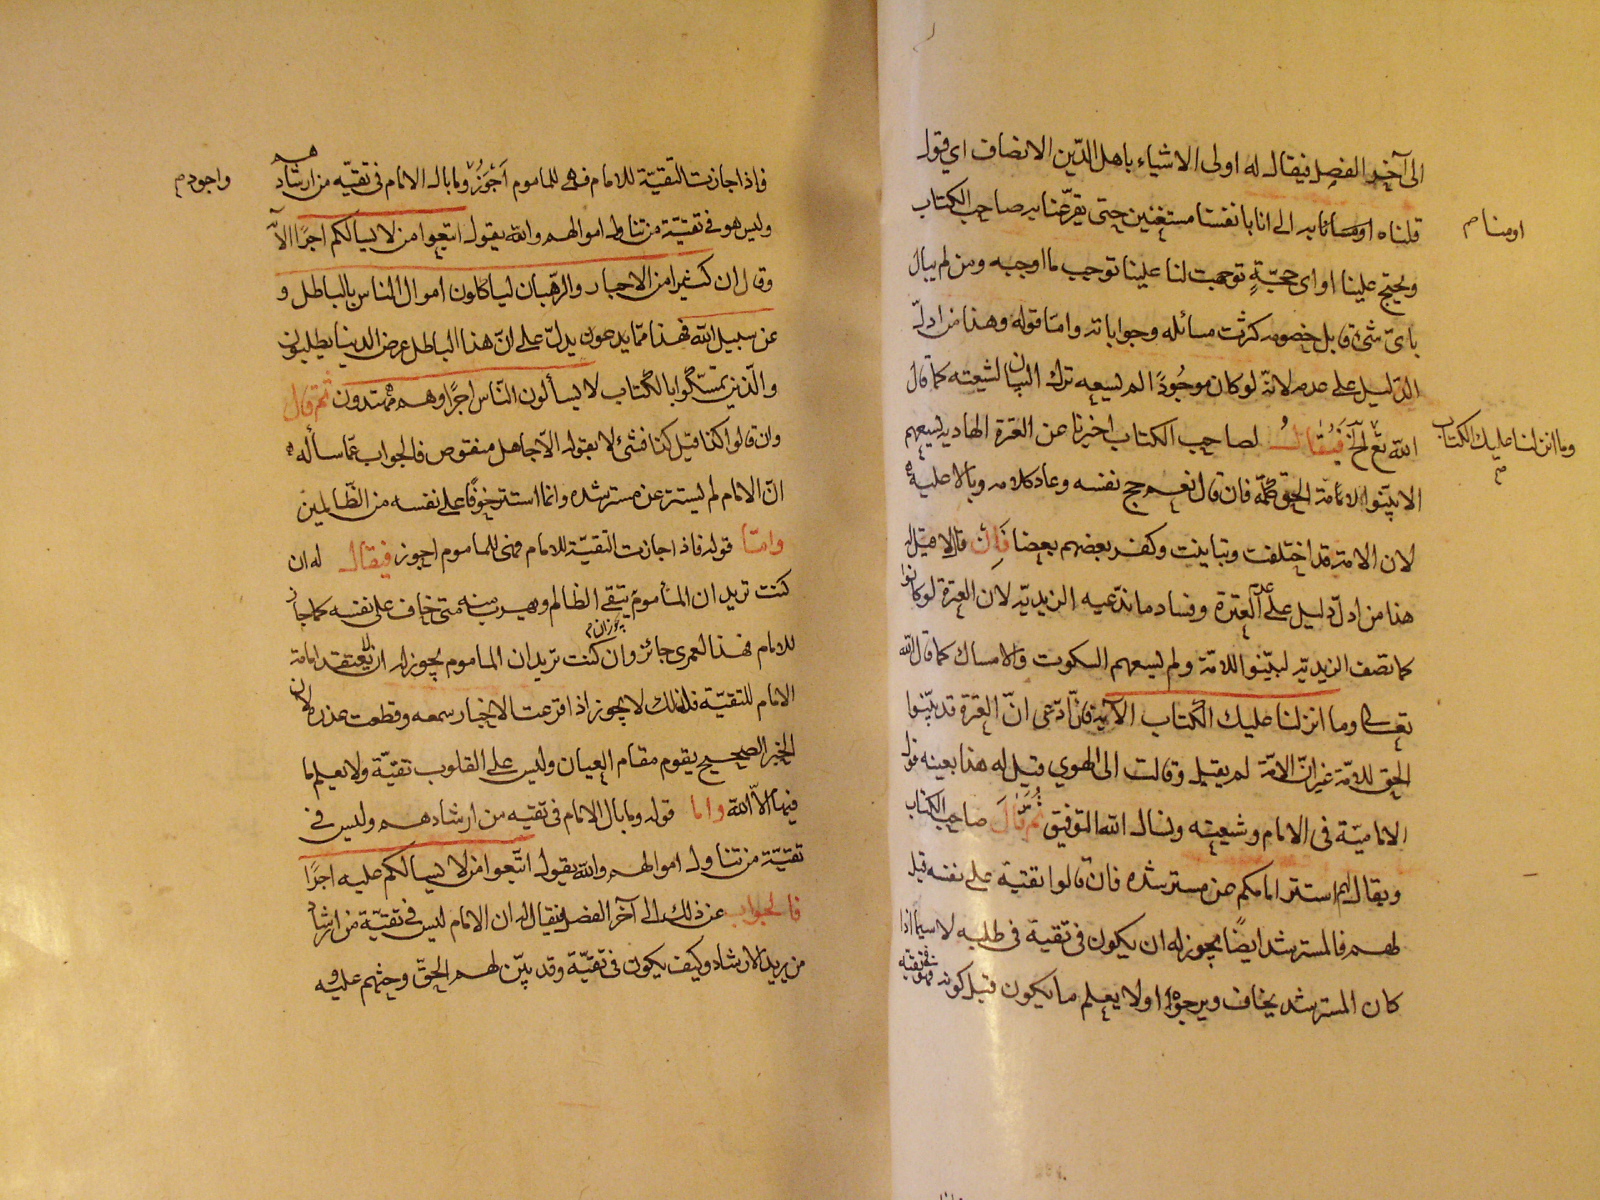 الى آخر الفصل فيقال له اولى الاشياء باهل الدّين الانصاف اي قول
قلناه اومأنا به الى انا بانفسنا مستغنين حتى يقرّعنا به صاحب الكتاب
اومنا م
ويحتج علينا او اى حجّةٍ توجهت لنا علينا توجب ما اوجبه ومن لم يبال
باىّ شئ قابل خصومه كثرت مسائله وجواباته وامّا قوله وهذا من ادلّ
الدّليل على عدمه لانّه لو كان موجُودًا لم يسعه ترك البيان لشيعته كما قال
الله تع الخ فيُقالُ لصاحب الكتاب اخبرنا عن العترة الهادية يسعهم
وما انزلنا عليك الكتاب
م
الا يبيّنوا للامّة الحق كلّه فان قال نعم حج نفسه وعاد كلامه وبالا عليه
لان الامة قد اختلفت وتباينت وكفر بعضهم بعضا فَاِنْ قال لا قيل له
هذا من ادلّ دليل على عدم العترة وفساد ما تدّعيه الزيديّه لان العترة لو كانوا
كما تصف الزيديّه لبيّنوا للامّة ولم يسعهم السكوت والامساك كما قال الله
تعالى وما انزلنا عليك الكتاب الآية فان ادّعى انّ العترة قد بيّنوا
الحق للامّة غير انّ الامّة لم يقبل وقالت الى الهوى قيل له هذا بعينه قول
الاماميّة فى الامام وشيعته ونسال الله التوفيق ثُمَّ قَالَ صاحب الكتاب
ويقال لهم استتر امامكم عن مسترشده فان قالوا تقيّة على نفسه قيل
لهم فالمسترشد ايضًا يجوز له ان يكون فى تقية فى طلبه لا سيّما اذا
كان المسترشد يخاف ويرجو ولا يعلم ما يكون قبل كونه فهو فى تقيّه
فاذا جازت التقيّة للامام فهى للماموم اَجْوَزُ وما بال الامام فى تقيّه من ارشادهم
واجود م
وليس هو فى تقيّة من تناول اموالهم والله يقول اتبعوا من لا يسالكم اجرًا الآ
وقال ان كثيرا من الاحبار والرّهبان لياكلون اموال الناس بالباطل و
عن سبيل الله فهذا ممّا يدعون يدلّ على انّ هذا الباطل عرض الدنيا يطلبون
والّذين يمسّكوا بالكتاب لا يسألون النّاس اجرًا وهم مهتدون ثمّ قال
وان قالوا كذا قيل كذا فشئ لا يقوله الّا جاهل منقوص فالجواب عمّا سأله
انّ الامام لم يستتر عن مسترشده وانما استتر خوفًا على نفسه من الظّالمين
وامّا قوله فاذا جازت التقيّة للامام فهى للماموم اجوز فيقال له ان
كنت تريد ان المأموم يتّقى الظالم ويهرب منه متى خاف على نفسه كما جاز
يجوز ان م
للامام فهذا لعمرى جائز وان كنت تريد ان الماموم يجوز له ان لا يعتقد امامة
الامام للتقيّة فذلك لا يجوز اذا قرعت الاخبار سمعه وقطعت عذره لان
الخبر الصحيح يقوم مقام العيان وليس على القلوب تقيّة ولا يعلم ما
فيها الاّ الله واما قوله وما بال الامام فى تقيه من ارشادهم وليس فى
تقيّة من تناول اموالهم والله يقول اتّبعوا من لا يسالكم عليه اجرًا
فالجواب عن ذلك الى آخر الفصل فيقال له ان الامام ليس فى تقيّة من ارشاد
من يريد الارشاد وكيف يكون فى تقيّة وقد بيّن لهم الحقّ وحثهم عليه